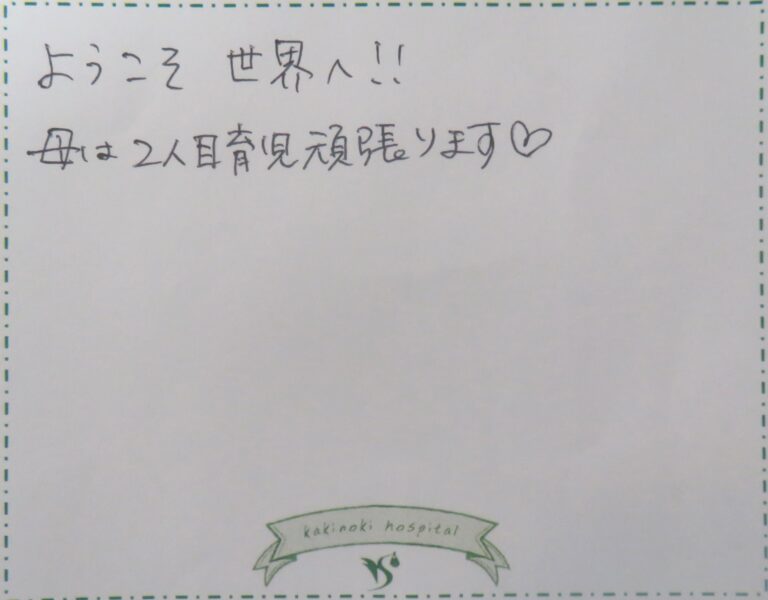 ようこそ 世界へ!!
母は2人目育児頑張ります♡
kakinoki hospital